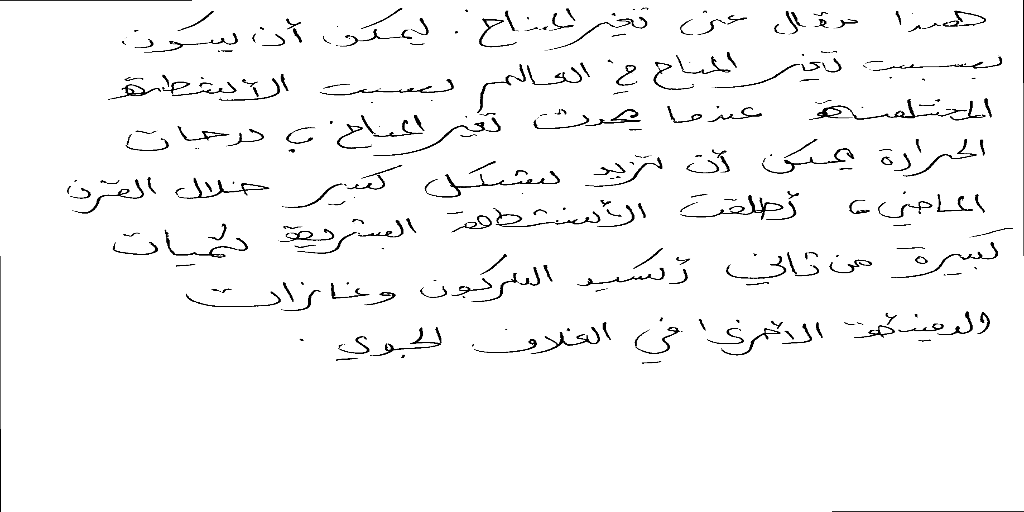 هذا مقال عن تغير المناخ. يمكن أن يكون
بسبب تغير المناخ في العالم بسبب الأنشطة
المختلفة عندما يحدث تغير المناخ، درجات
الحرارة يمكن أن تزيد بشكل كبير خلال القرن
الماضي، أطلقت الأنشطة البشرية كميات
كبيرة من ثاني أكسيد الكربون وغازات
الدفيئة الأخرى في الغلاف الجوي.